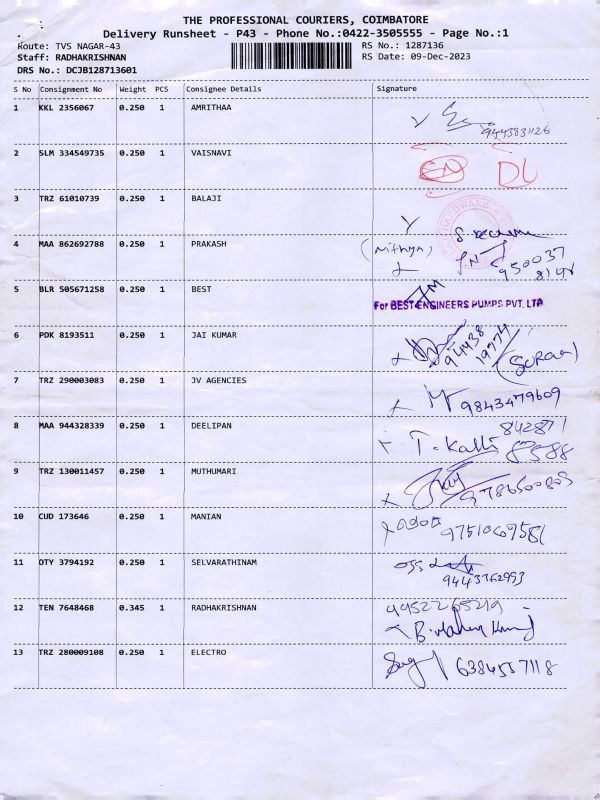 THE PROFESSIONAL COURIERS, COIMBATORE
Delivery Runsheet - P43 - Phone No.:0422-3505555 - Page No.:1
Route: TVS NAGAR-43 RS No.: 1287136
Staff: RADHAKRISHNAN RS Date: 09-Dec-2023
DRS No.: DCJB128713601
S No Consignment No Weight PCS Consignee Details Signature
1 KKL 2356067 0.250 1 AMRITHAA
9443831126
2 SLM 334549735 0.250 1 VAISNAVI DL
3 TRZ 61010739 0.250 1 BALAJI
4 MAA 862692788 0.250 1 PRAKASH (Nithya)
5 BLR 505671258 0.250 1 BEST For BEST ENGINEERS PUMPS PVT. LTD
6 PDK 8193511 0.250 1 JAI KUMAR 94438
19774
7 TRZ 290003083 0.250 1 JV AGENCIES 9843479609
8 MAA 944328339 0.250 1 DEELIPAN
9 TRZ 130011457 0.250 1 MUTHUMARI
10 CUD 173646 0.250 1 MANIAN
11 OTY 3794192 0.250 1 SELVARATHINAM
12 TEN 7648468 0.345 1 RADHAKRISHNAN
13 TRZ 280009108 0.250 1 ELECTRO